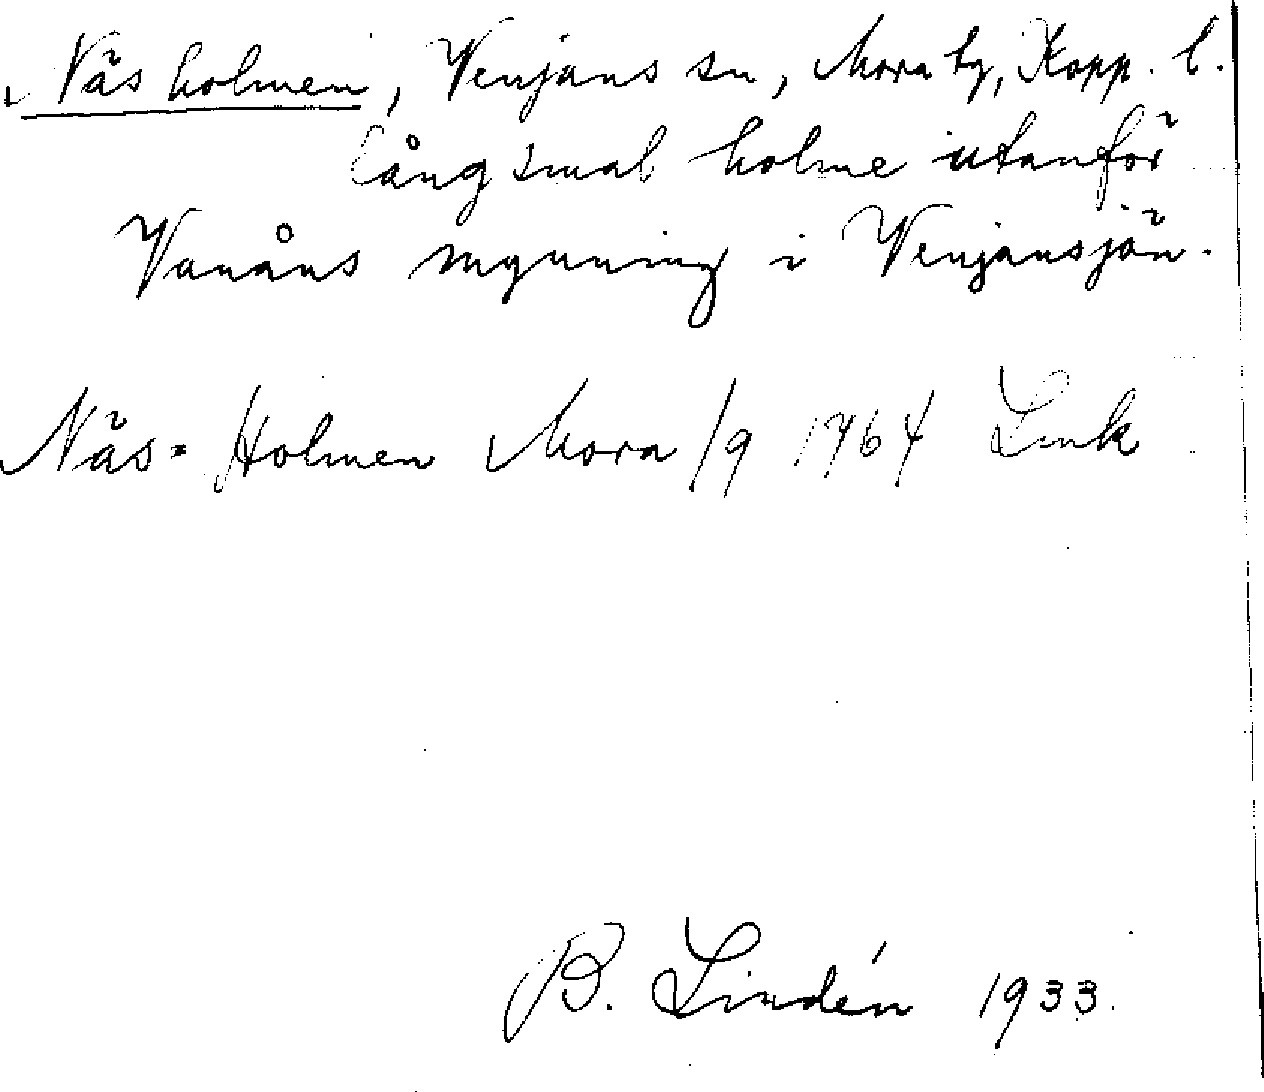 Näsholmen, Venjans sn, Mora tg, Kopp. l.
långsmal holme utanför
Vanåns mynning i Venjansjön.
Näs-Holmen Mora 1/9 1764 Lmk
B. Lindén 1933.